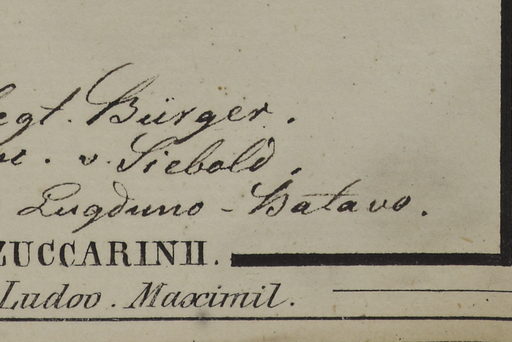 legt. Bürger.
v. Siebold.
Lugduno-Batavo.
ZUCCARINII.
Ludov. Maximil.